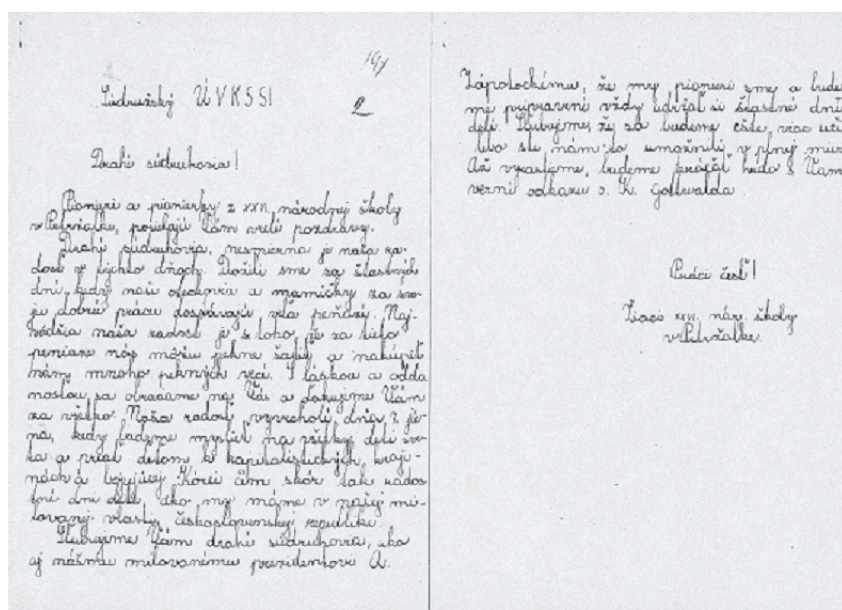 191
Súdružský ÚV KSS!
2
Drahí súdruhovia!
Pionieri a pionierky z XXVI. národnej školy
v Petržalke, posielajú Vám vrelé pozdravy.
Drahí súdruhovia, nesmierna je naša ra-
dosť v týchto dňoch. Dožili sme sa šťastných
dní, kedy naši oteckovia a mamičky za svo-
ju dobrú prácu dospravajú veľa peňazí. Naj-
väčšia naša radosť je z toho, že za tieto
peniaze nás môžu pekne šatiť a nakúpiť
nám mnoho pekných vecí. S láskou a odda
nosťou sa obraciame na Vás a ďakujeme Vám
za všetko. Naša radosť vyvrcholí dňa 1. jú-
na, kedy budeme myslieť na všetky deti sve-
ta a priať deťom v kapitalistických kraji-
nách a bojujúcej Kórei čím skôr tak rados
tné dni detí, ako my máme v našej mi-
lovanej vlasti, československej republike.
Sľubujeme Vám drahí súdruhovia, ako
aj nášmu milovanému prezidentovi A.
Zápotockému, že my pionieri sme a bude
me pripravení vždy udržať si šťastné dni
detí. Sľubujeme, že sa budeme ešte viac učiť
lebo ste nám to umožnili v plnej miere
Až vyrastieme, budeme kráčať hrdo s Vami
verní odkazu s. K. Gottwalda.
Práci česť!
Žiaci XXVI. nár. školy
v Petržalke.